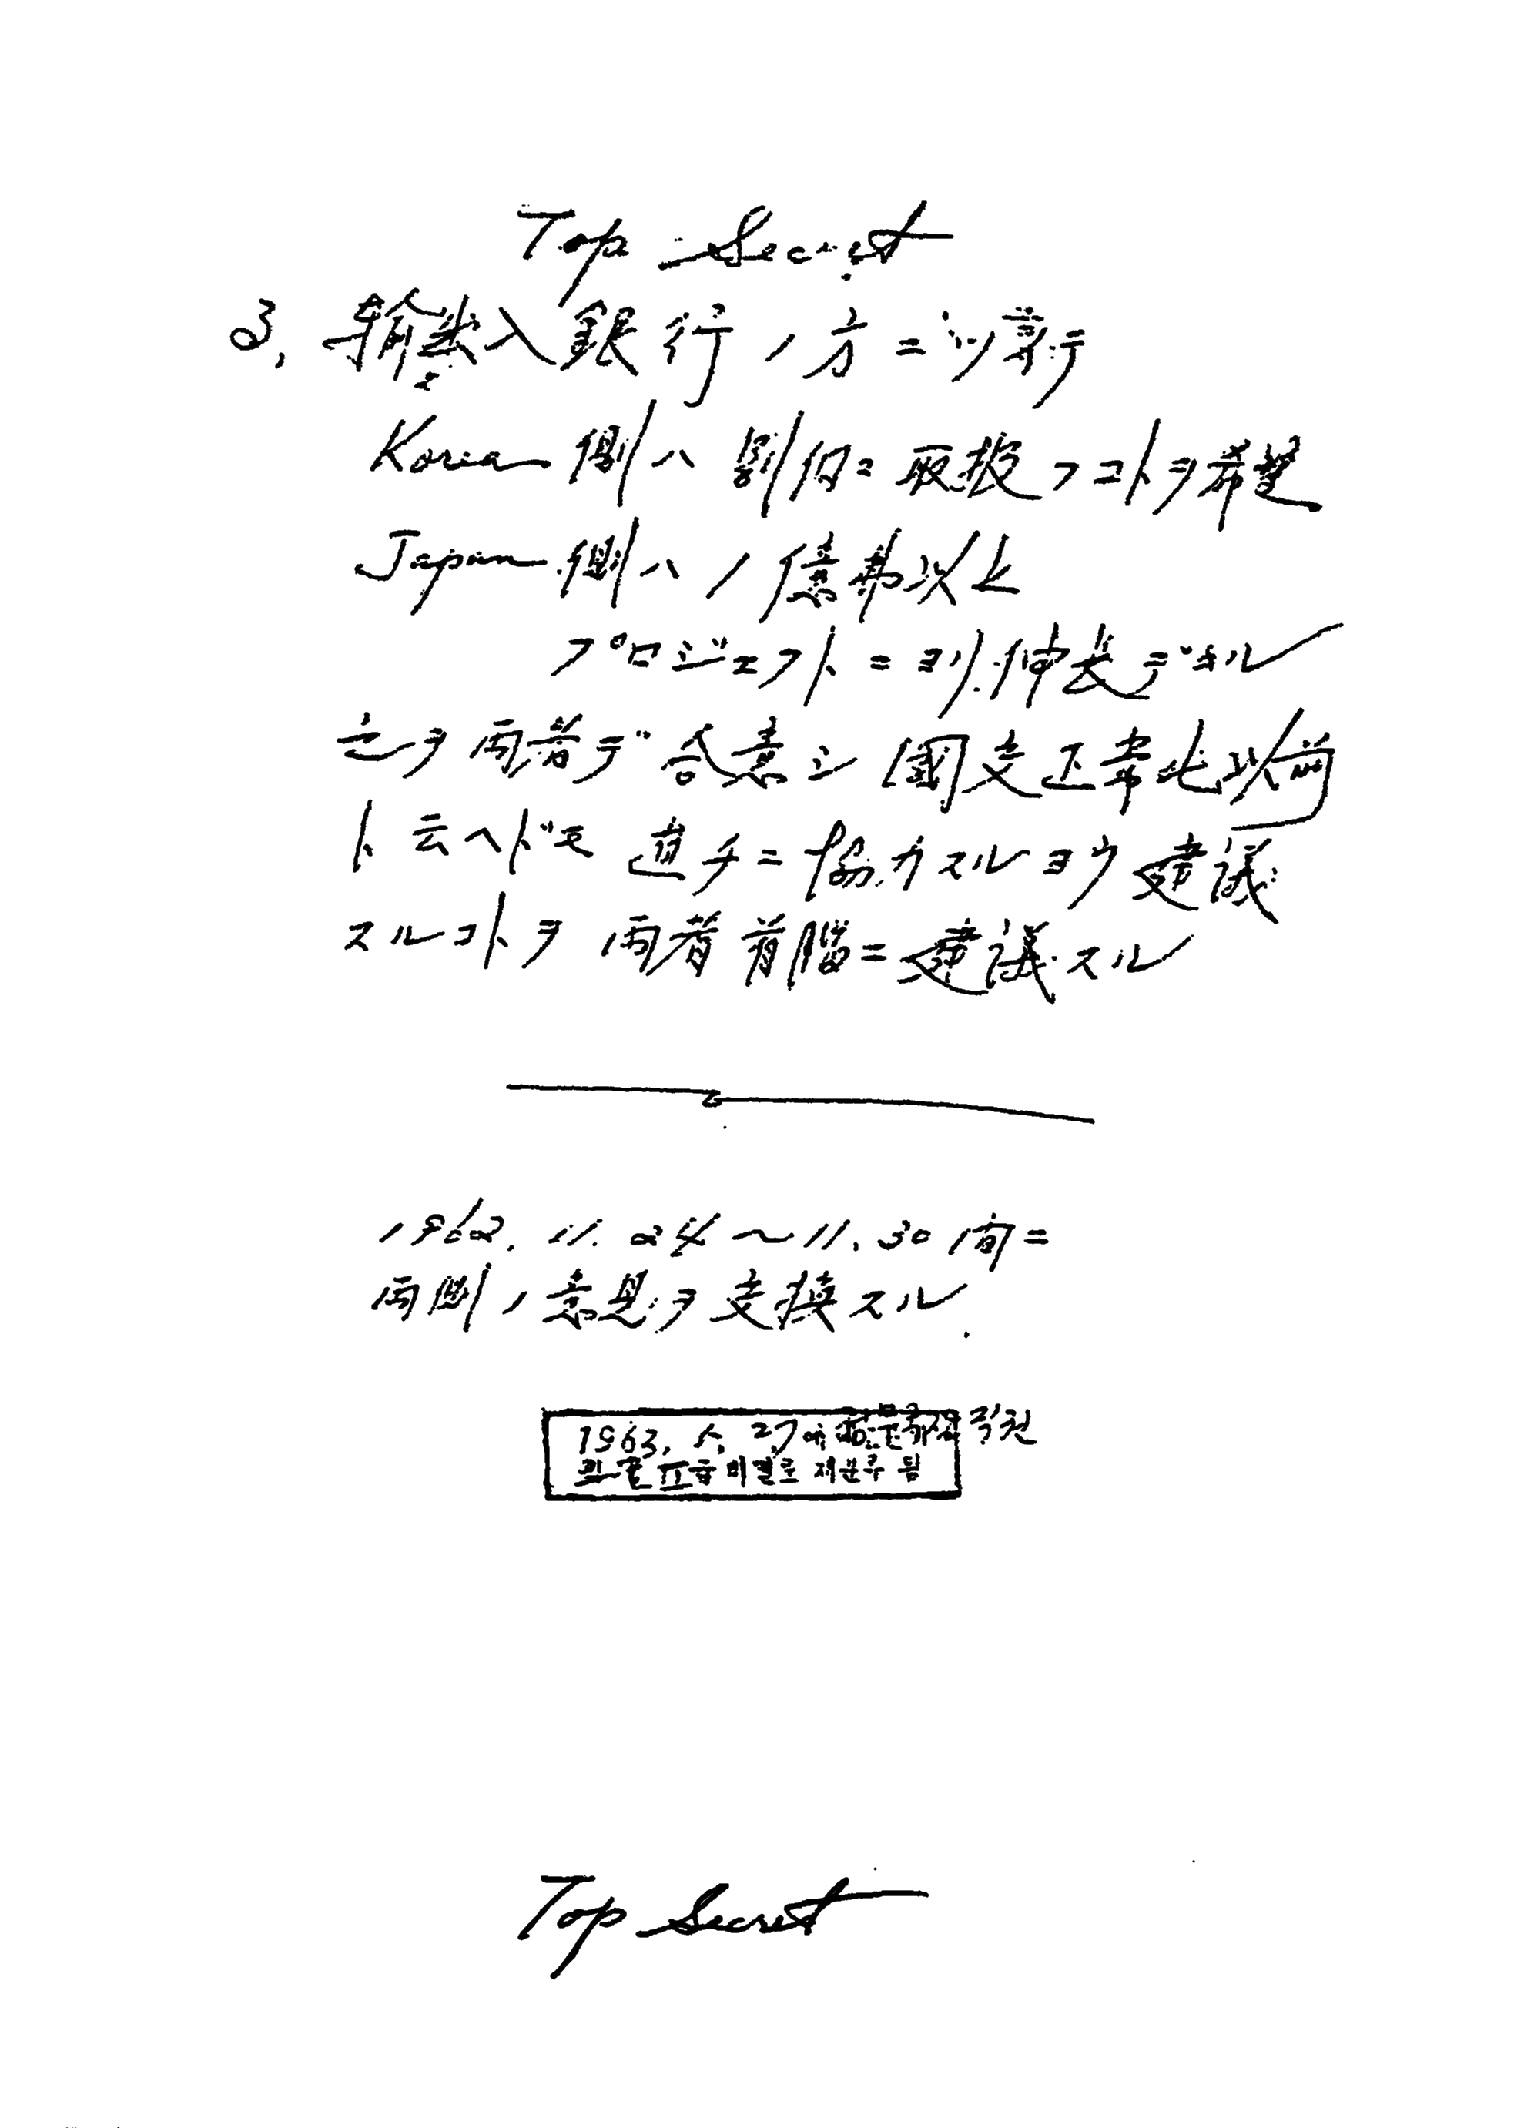 Top Secret
3, 輸出入銀行ノ方ニツイテ
Korea側ハ別個ニ取扱フコトヲ希望
Japan側ハ1億弗以上
プロジェクトニヨリ伸長デキル
之ヲ両者デ合意シ國交正常化以前
ト云ヘドモ直チニ協力スルヨウ建議
スルコトヲ両者首脳ニ建議スル
1962. 11. 24〜11. 30間ニ
両側ノ意見ヲ交換スル
1963. 5. 27에
Ⅱ급 비밀로 재분류 됨
Top Secret